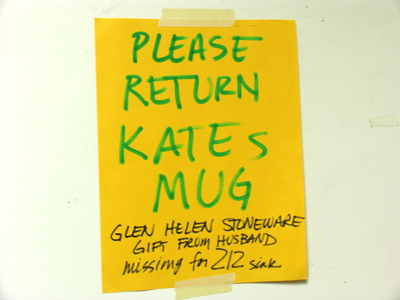 PLEASE
RETURN
KATEs
MUG
GLEN HELEN STONEWARE
GIFT FROM HUSBAND
missing for 212 sink